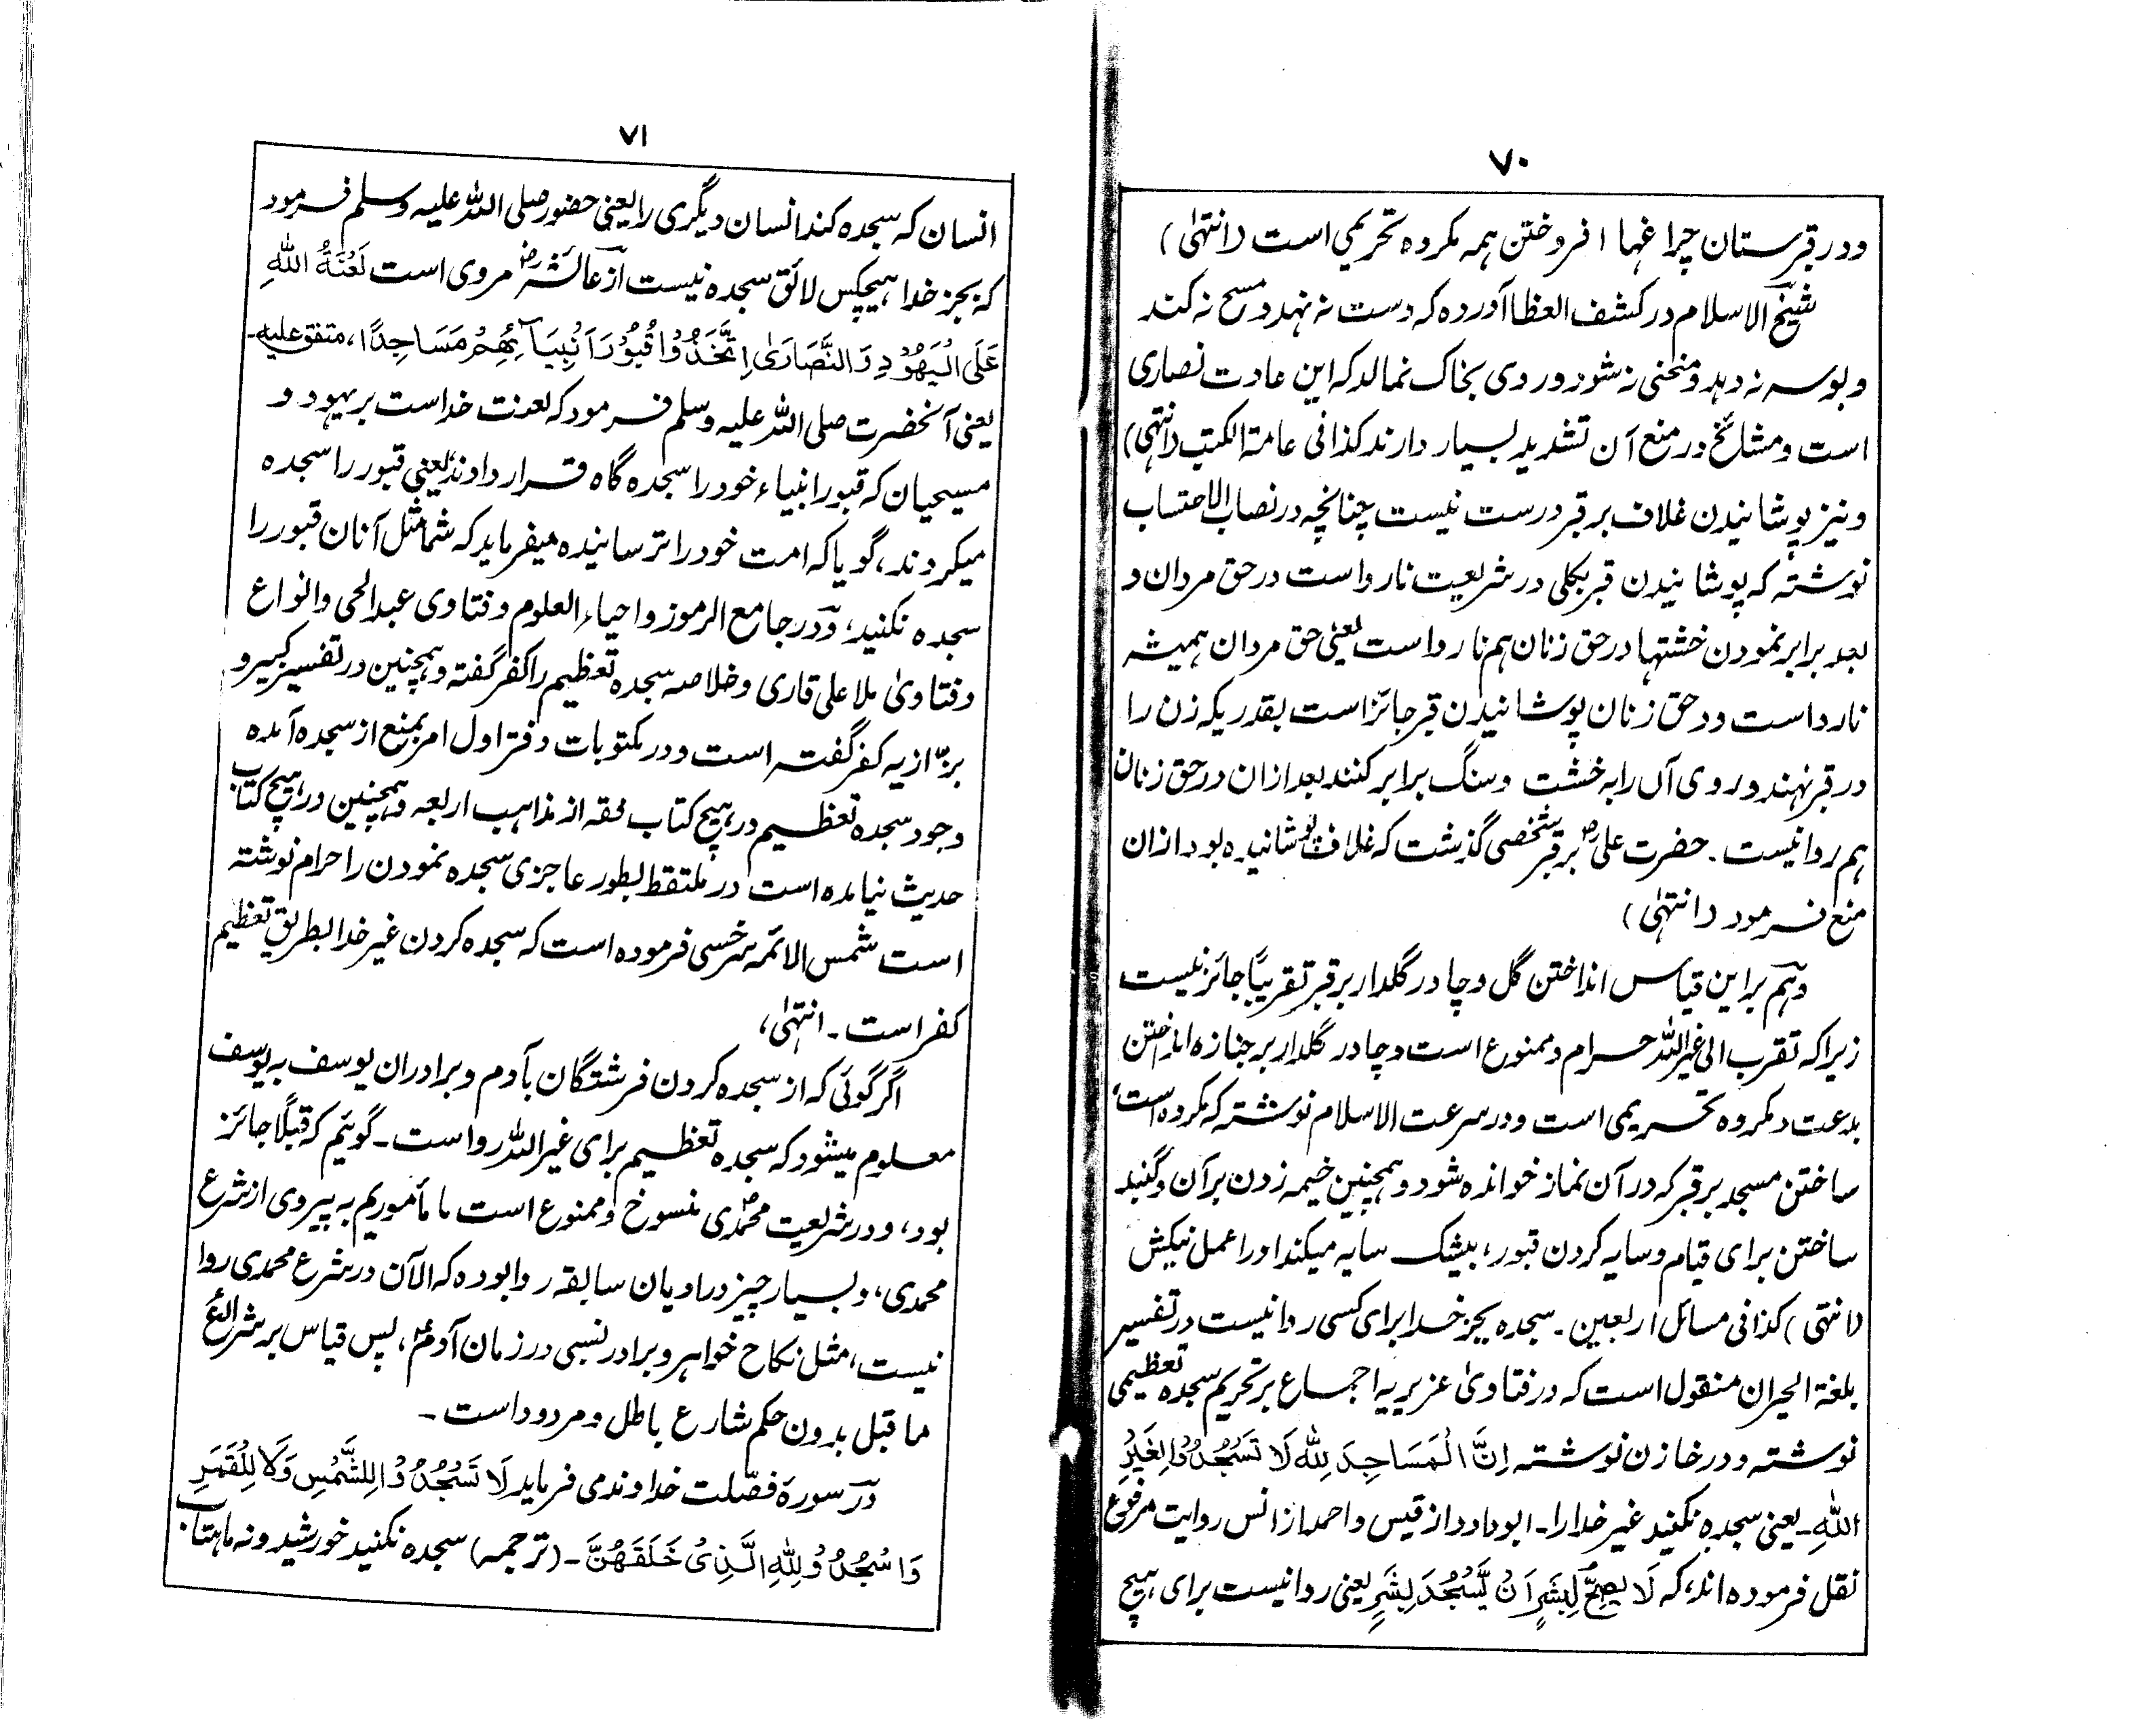 ۷۰
ودر قبرستان چراغها افروختن ہمہ مکروہ تحریمی است (انتہیٰ)
شیخ الاسلام در کشف العظا آوردہ کہ دست نہ نہد و مسح نہ کند
و بوسہ نہ دہد و منحنی نہ شود و روی بخاک نمالد کہ این عادت نصاری
است و مشائخ در منع آن تشدید بسیار دارند کذا فی عامة الکتب (انتہی)
و نیز پوشانیدن غلاف بر قبر درست نیست چنانچہ در نصاب الاحتساب
نوشتہ کہ پوشانیدن قبر بکلی در شریعت ناروا است در حق مردان و
بعد برابر نمودن خشتہا در حق زنان ہم ناروا است یعنی حق مردان ہمیشہ
ناروا است و در حق زنان پوشانیدن قبر جائز است بقدریکہ زن را
در قبر نہند و روی آن را بہ خشت و سنگ برابر کنند بعد ازان در حق زنان
ہم روا نیست۔ حضرت علیؓ بر قبر شخصی گذشت کہ غلاف پوشانیدہ بود ازان
منع فرمود (انتہیٰ)
وہم براین قیاس انداختن گل و چادر گلدار بر قبر تقریبًا جائز نیست
زیراکہ تقرب الی غیر اللہ حرام و ممنوع است و چادر گلدار بر جنازہ انداختن
بدعت و مکروہ تحریمی است و در سرعت الاسلام نوشتہ کہ مکروہ است،
ساختن مسجد بر قبر کہ در آن نماز خواندہ شود و ہمچنین خیمہ زدن بر آن و گنبد
ساختن برای قیام و سایہ کردن قبور، بیشک سایہ میکند اورا عمل نیکش
(انتہی) کذا فی مسائل اربعین۔ سجدہ بجز خدا برای کسی روا نیست در تفسیر
بلغة الحیران منقول است کہ در فتاویٰ عزیزیہ اجماع بر تحریم سجدہ تعظیمی
نوشتہ و در خازن نوشتہ اِنَّ الْمَسَاجِدَ لِلّٰہِ لَا تَسْجُدُوْا لِغَیْرِ
اللّٰہِ۔ یعنی سجدہ نکنید غیر خدا را۔ ابوداود از قیس و احمد از انس روایت مرفوع
نقل فرمودہ اند، کہ لَا یَصِحُّ لِبَشَرٍ اَنْ یَّسْجُدَ لِبَشَرٍ یعنی روا نیست برای ہیچ
۷۱
انسان کہ سجدہ کند انسان دیگری را یعنی حضور صلی اللہ علیہ وسلم فرمود
کہ بجز خدا ہیچکس لائق سجدہ نیست از عائشہؓ مروی است لَعْنَةُ اللّٰہِ
عَلَی الْیَھُوْدِ وَالنَّصَارَیٰ اِتَّخَذُوْا قُبُوْرَ اَنْبِیَآئِھِمْ مَسَاجِدًا، متفق علیہ۔
یعنی آنحضرت صلی اللہ علیہ وسلم فرمود کہ لعنت خدا است بر یہود و
مسیحیان کہ قبور انبیاء خود را سجدہ گاہ قرار دادند یعنی قبور را سجدہ
میکردند، گویا کہ امت خود را ترسانیدہ میفرماید کہ شما مثل آنان قبور را
سجدہ نکنید، و در جامع الرموز و احیاء العلوم و فتاوی عبدالحی و انواع
و فتاویٰ ملا علی قاری و خلاصہ سجدہ تعظیم را کفر گفتہ و ہمچنین در تفسیر کبیر و
بزّازیہ کفر گفتہ است و در مکتوبات دفتر اول امر بمنع از سجدہ آمدہ
وجود سجدہ تعظیم در ہیچ کتاب فقہ از مذاہب اربعہ و ہمچنین در ہیچ کتاب
حدیث نیامدہ است در ملتقط بطور عاجزی سجدہ نمودن را حرام نوشتہ
است شمس الائمہ سرخسی فرمودہ است کہ سجدہ کردن غیر خدا بطریق تعظیم
کفر است۔ انتہیٰ،
اگر گوئی کہ از سجدہ کردن فرشتگان بآدم و برادران یوسف بہ یوسف
معلوم میشود کہ سجدہ تعظیم برای غیر اللہ روا است۔ گوئیم کہ قبلًا جائز
بود، و در شریعت محمدیؐ منسوخ و ممنوع است ما مأموریم بہ پیروی از شرع
محمدی، و بسیار چیز در ادیان سابقہ روا بودہ کہ الآن در شرع محمدی روا
نیست، مثل نکاح خواہر و برادر نسبی در زمان آدمؑ، پس قیاس بر شرائع
ما قبل بدون حکم شارع باطل و مردود است۔
در سورۃ فصّلت خداوند می فرماید لَا تَسْجُدُوْا لِلشَّمْسِ وَلَا لِلْقَمَرِ
وَاسْجُدُوْ لِلّٰہِ الَّذِیْ خَلَقَھُنَّ۔ (ترجمہ) سجدہ نکنید خورشید و نہ ماہتاب